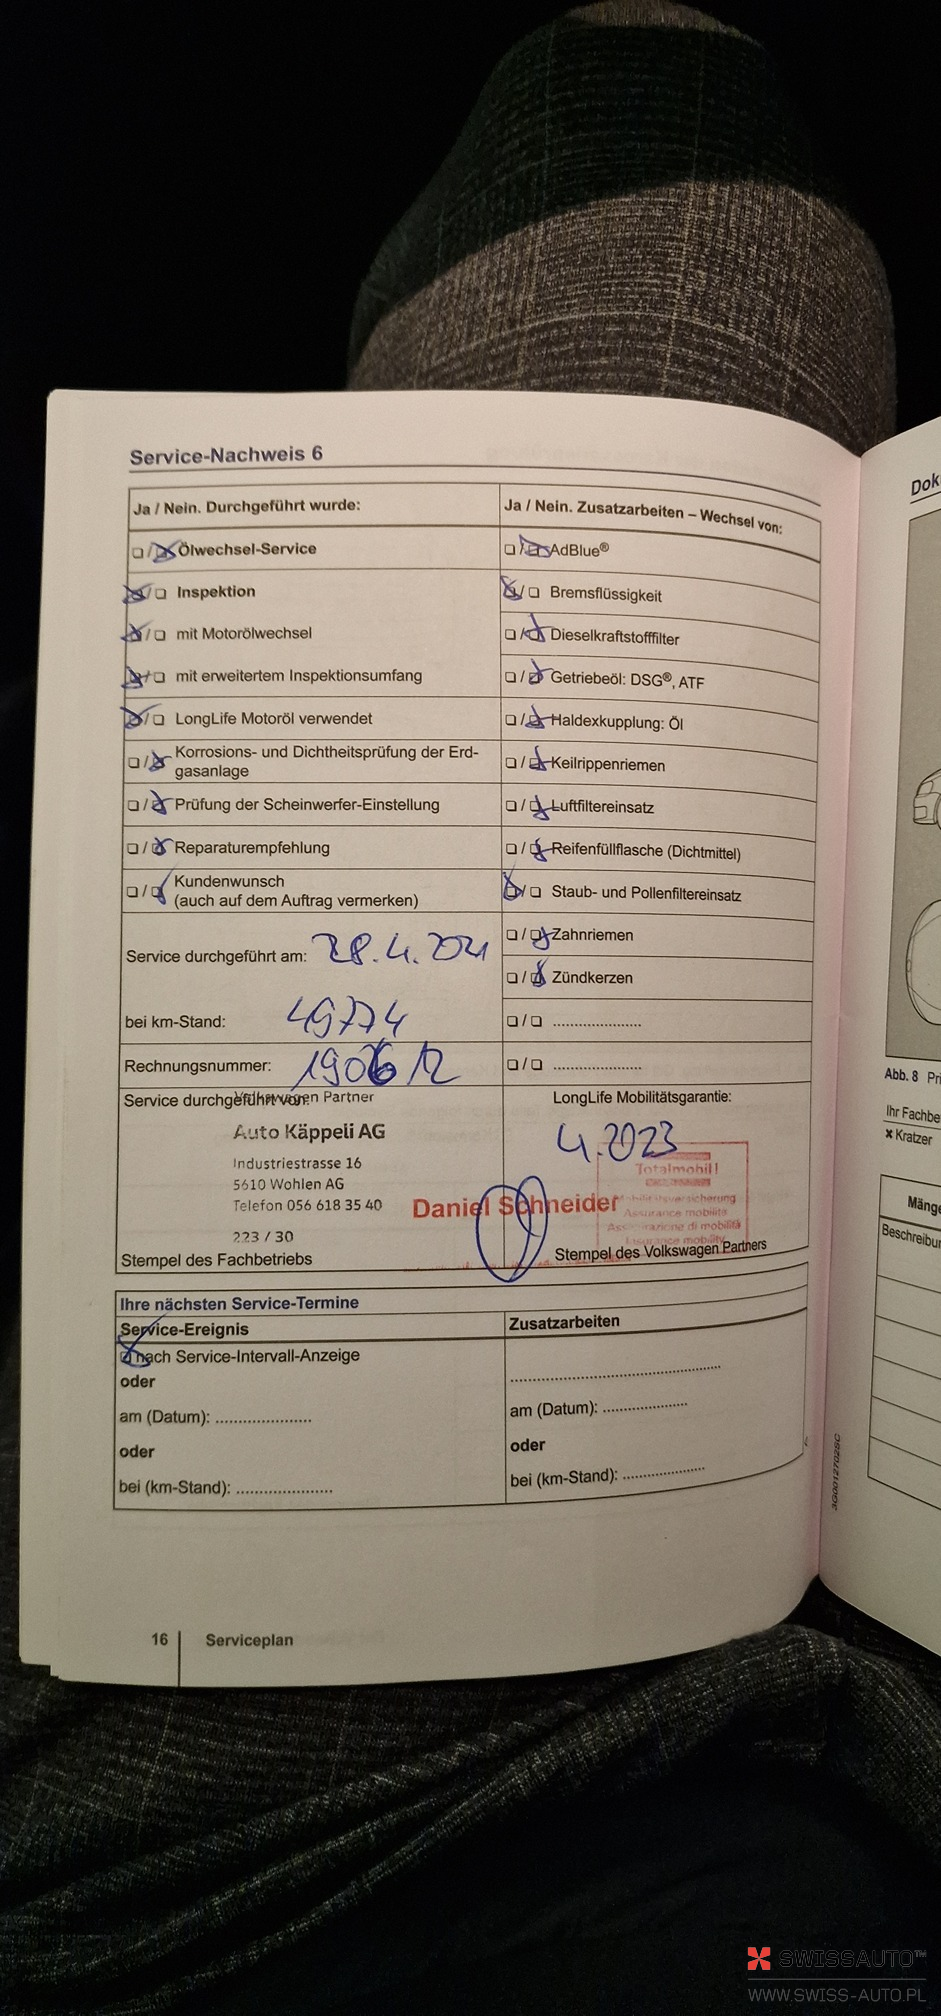 Service-Nachweis 6
Ja / Nein. Durchgeführt wurde:
Ölwechsel-Service
Inspektion
mit Motorölwechsel
mit erweitertem Inspektionsumfang
LongLife Motoröl verwendet
Korrosions- und Dichtheitsprüfung der Erd-
gasanlage
Prüfung der Scheinwerfer-Einstellung
Reparaturempfehlung
Kundenwunsch
(auch auf dem Auftrag vermerken)
Service durchgeführt am: 28.4.2021
bei km-Stand: 49774
Rechnungsnummer: 190612
Ja / Nein. Zusatzarbeiten – Wechsel von:
AdBlue®
Bremsflüssigkeit
Dieselkraftstofffilter
Getriebeöl: DSG®, ATF
Haldexkupplung: Öl
Keilrippenriemen
Luftfiltereinsatz
Reifenfüllflasche (Dichtmittel)
Staub- und Pollenfiltereinsatz
Zahnriemen
Zündkerzen
Service durchgeführt von:
Volkswagen Partner
Auto Käppeli AG
Industriestrasse 16
5610 Wohlen AG
Telefon 056 618 35 40
223 / 30
Stempel des Fachbetriebs
LongLife Mobilitätsgarantie:
4.2023
Totalmobil!
Mobilitätsversicherung
Assurance mobilité
Assicurazione di mobilità
Insurance mobility
Daniel Schneider
Stempel des Volkswagen Partners
Ihre nächsten Service-Termine
Service-Ereignis
nach Service-Intervall-Anzeige
oder
am (Datum): ......................
oder
bei (km-Stand): ......................
Zusatzarbeiten
am (Datum): ......................
oder
bei (km-Stand): ......................
16 Serviceplan
3G0012702SC
Abb. 8
Ihr Fachbe
× Kratzer
Mänge
Beschreibu
SWISSAUTO™
WWW.SWISS-AUTO.PL